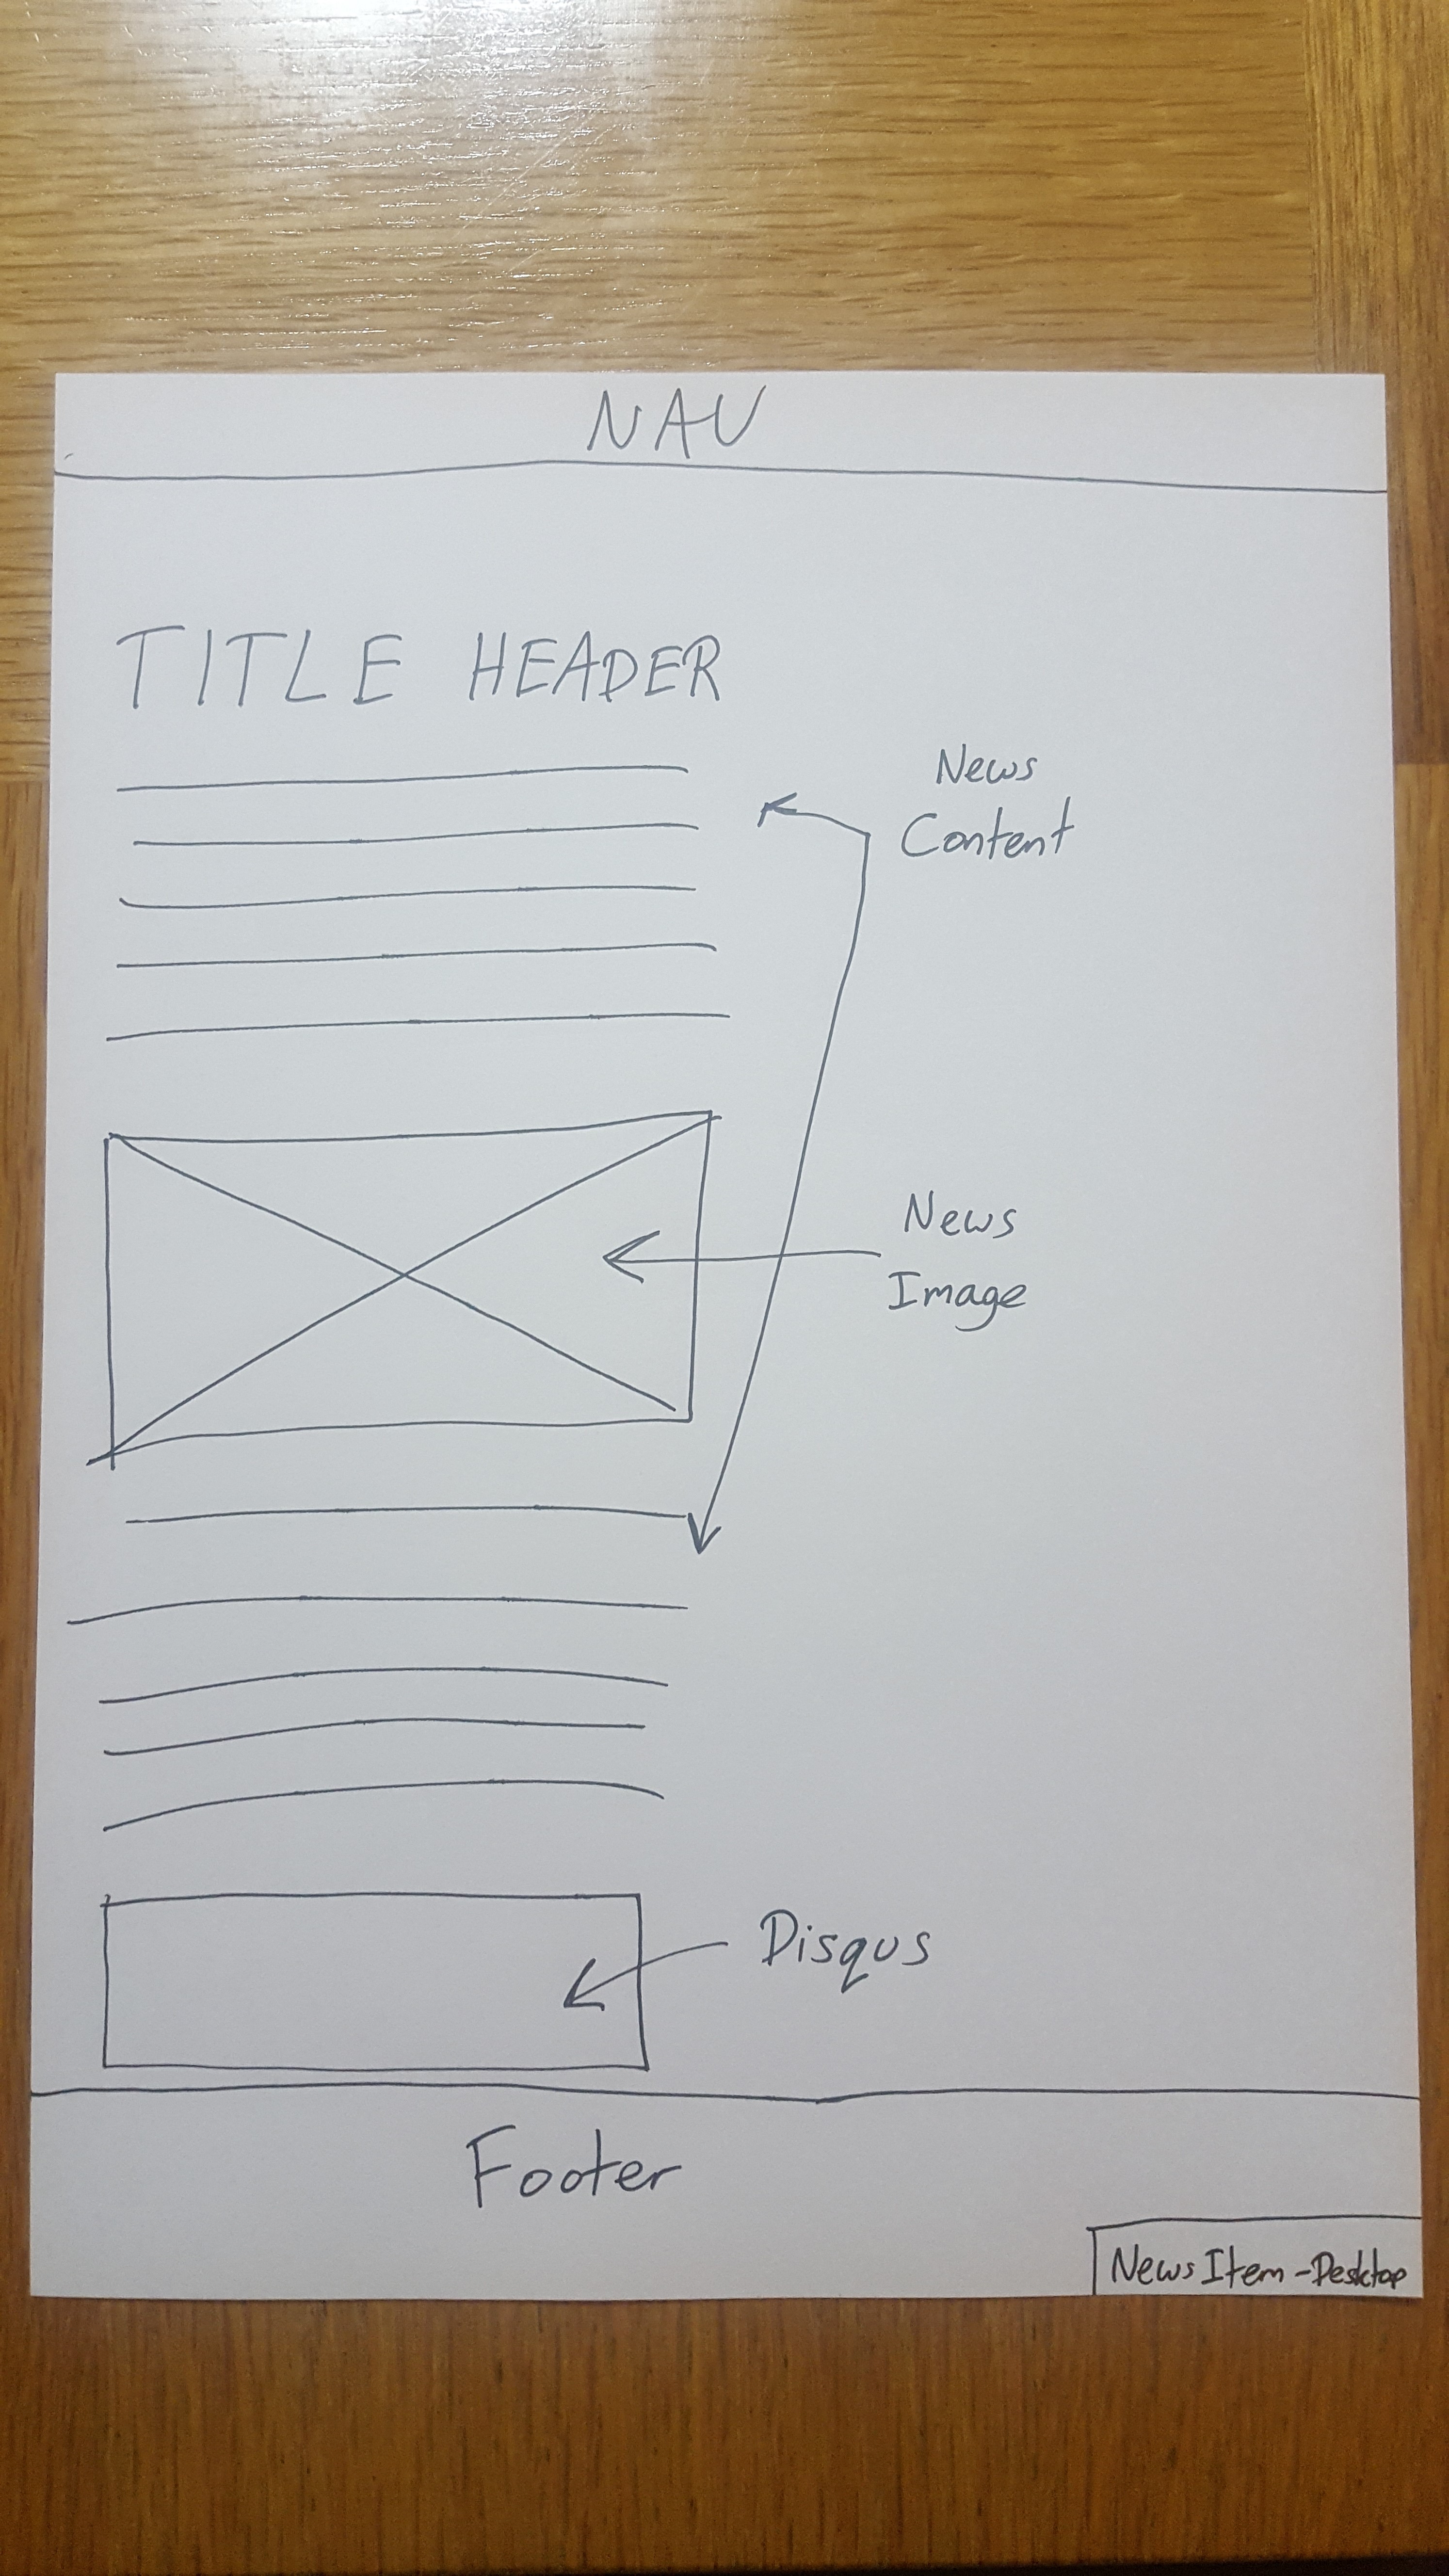 NAV
TITLE HEADER
News
Content
News
Image
Disqus
Footer
News Item - Desktop